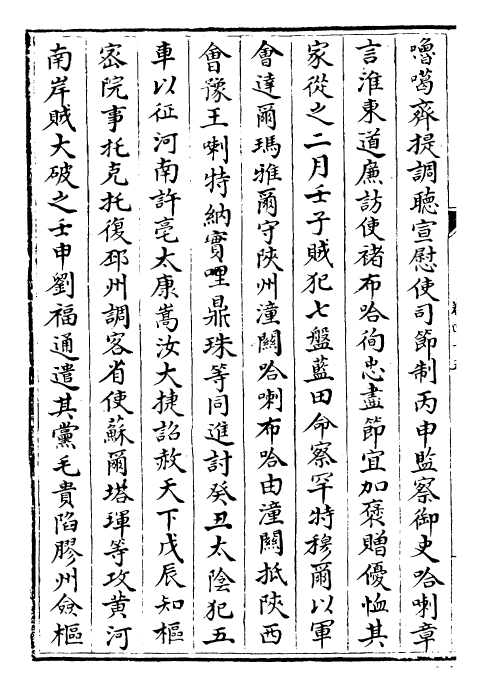 嚕噶齊提調聽宣慰使司節制丙申監察御史哈喇章
言淮東道廉訪使褚布哈徇忠盡節宜加褒贈優恤其
家從之二月壬子賊犯七盤藍田命察罕特穆爾以軍
會達爾瑪雅爾守陜州潼關哈喇布哈由潼關抵陜西
會豫王喇特納實哩鼎珠等同進討癸丑太陰犯五
車以征河南許亳太康嵩汝大捷詔赦天下戊辰知樞
宻院事托克托復邳州調客省使蘇爾塔琿等攻黄河
南岸賊大破之壬申劉福通遣其黨毛貴陷膠州僉樞